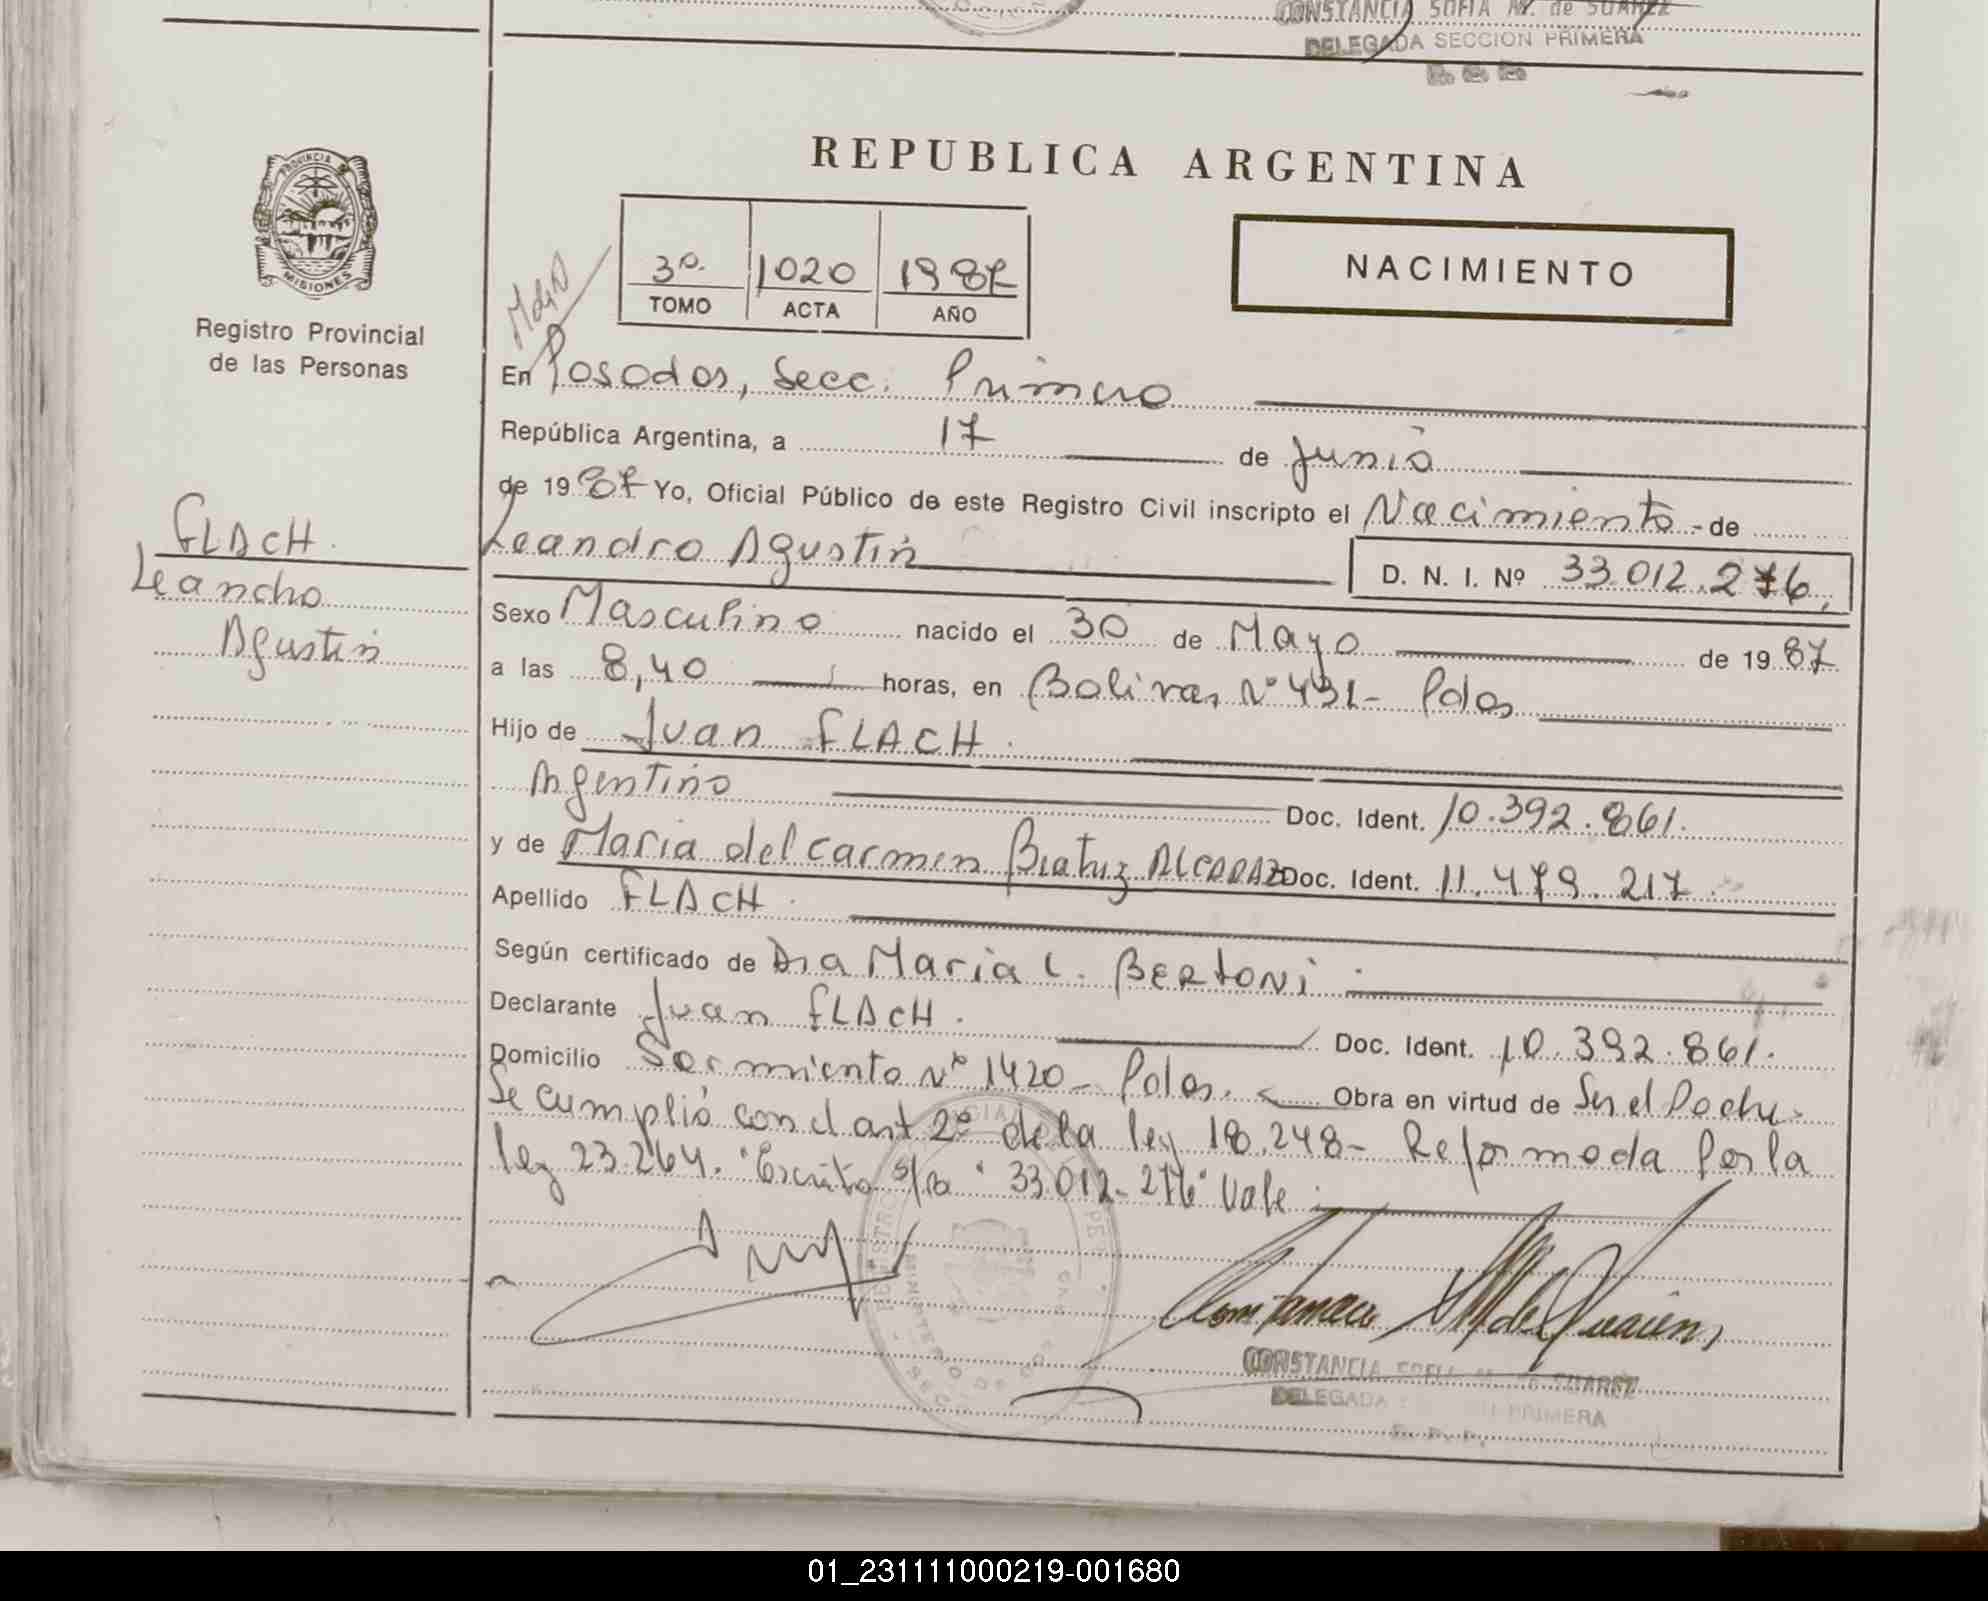 CONSTANCIA SOFIA M. de SUAREZ
DELEGADA SECCION PRIMERA
PROVINCIA
MISIONES
Registro Provincial
de las Personas
FLACH.
Leandro
Agustin
REPUBLICA ARGENTINA
3º. 1020 1987
TOMO ACTA AÑO
NACIMIENTO
En Posadas, Secc. Primera
República Argentina, a 17 de Junio
de 1987 Yo, Oficial Público de este Registro Civil inscripto el Nacimiento - de
Leandro Agustin D. N. I. Nº 33.012.276.
Sexo Masculino nacido el 30 de Mayo de 1987
a las 8,40 horas, en Bolivar Nº 431- Pdas
Hijo de Juan FLACH.
Argentino Doc. Ident. 10.392.861.
y de Maria del Carmen Beatriz ALCARAZ Doc. Ident. 11.479.217.
Apellido FLACH.
Según certificado de Dra Maria C. BERTONI.
Declarante Juan FLACH. Doc. Ident. 10.392.861.
Domicilio Sarmiento Nº 1420- Pdas. Obra en virtud de Ser el Padre.
Se cumplió con el art 2º de la ley 18.248- Reformada Por la
ley 23.264. "Escrito s/ra " 33.012-276" Vale.
CONSTANCIA SOFIA M. de SUAREZ
DELEGADA SECCION PRIMERA
R. P. P.
01_231111000219-001680